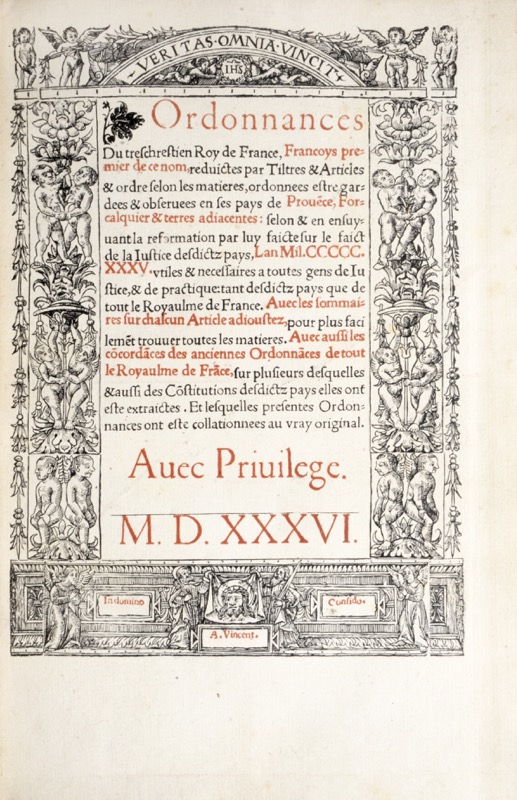 VERITAS·OMNIA·VINCIT
IHS
Ordonnances
Du treschrestien Roy de France, Francoys pre-
mier de ce nom, reduictes par Tiltres & Articles
& ordre selon les matieres, ordonnees estre gar-
dees & obseruees en ses pays de Prouēce, For-
calquier & terres adiacentes: selon & en ensuy-
uant la reformation par luy faicte sur le faict
de la Iustice desdictz pays, Lan Mil. CCCCC.
XXXV. vtiles & necessaires a toutes gens de Iu
stice, & de practique: tant desdictz pays que de
tout le Royaulme de France. Auec les sommai-
res sur chascun Article adioustez, pour plus faci
lemēt trouuer toutes les matieres. Auec aussi les
cōcordāces des anciennes Ordonnāces de tout
le Royaulme de Frāce, sur plusieurs desquelles
& aussi des Cōstitutions desdictz pays elles ont
este extraictes. Et lesquelles presentes Ordon-
nances ont este collationnees au vray original.
Auec Priuilege.
M. D. XXXVI.
In domino
Confido.
A. Vincent.